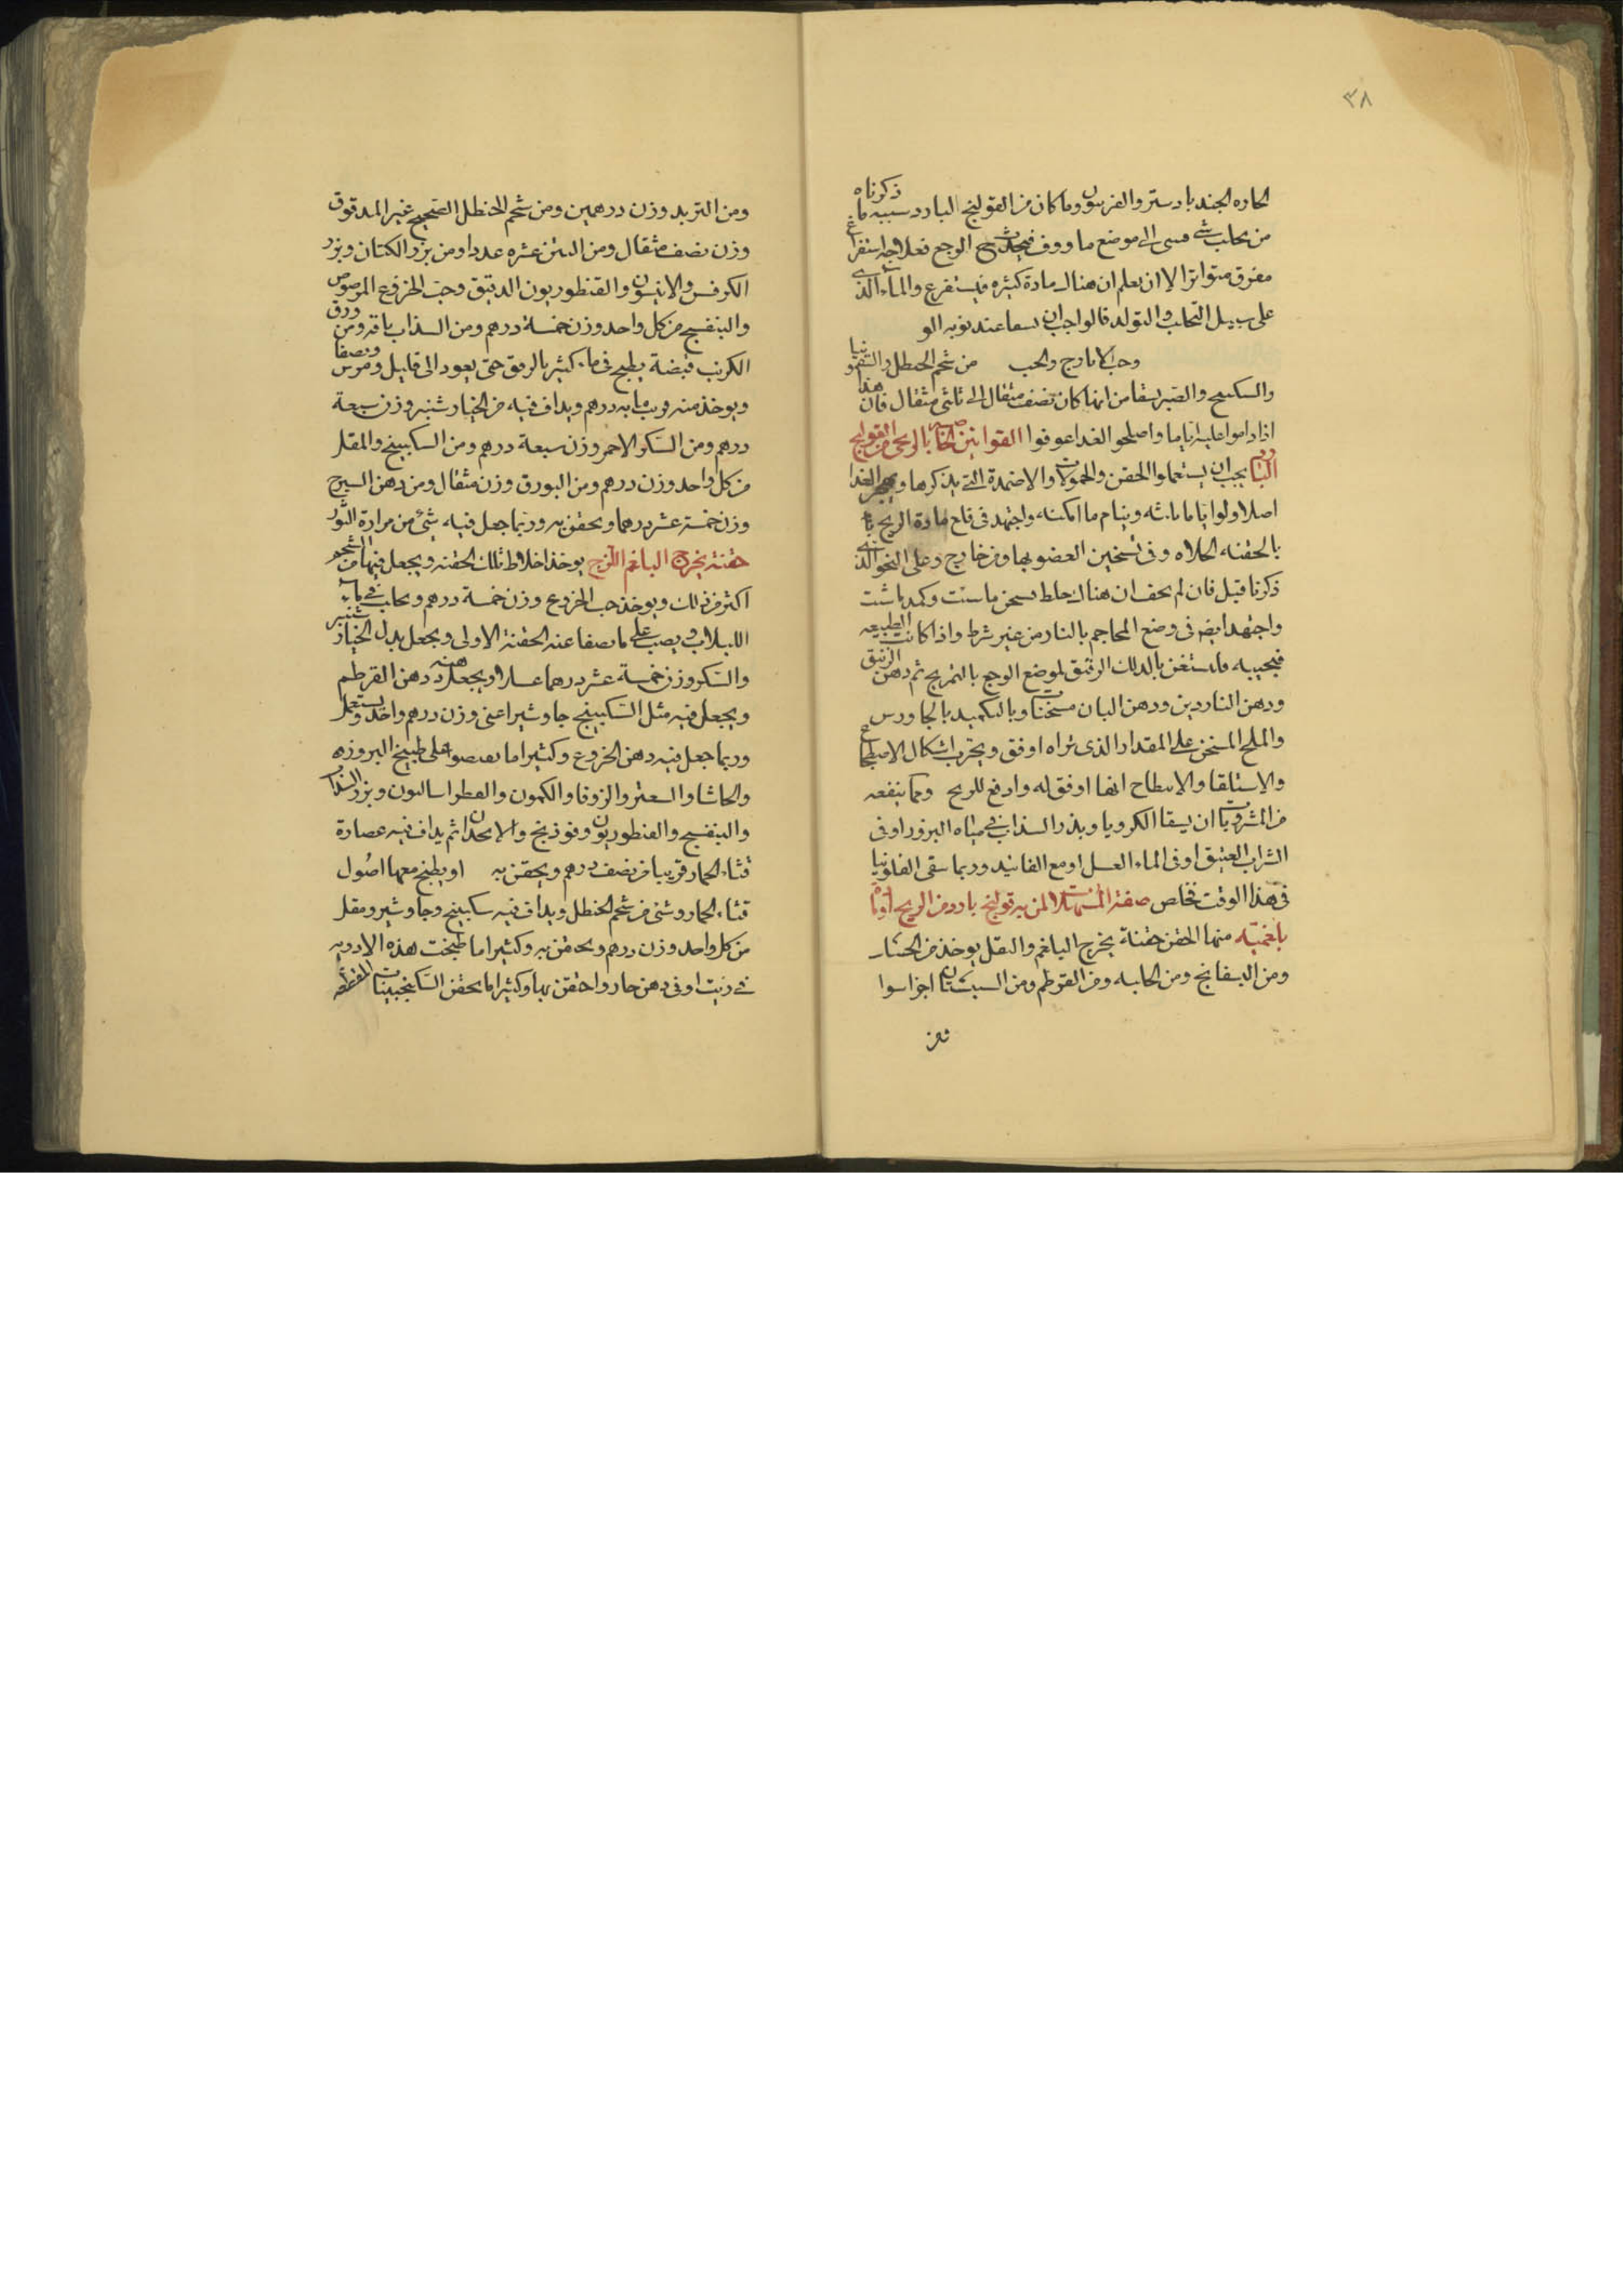 ٣٨
الحاره الجندبادستر والفربيون وما كان من القولنج البارد سببه ما ذكرناه
من تحلب شى الى موضع ما ووف فيحدث الوجع فعلاجه استفراغ
مفرق متواترا الا ان يعلم ان هناك مادة كثيره فيستفرغ والماء الذى
على سبيل التحلب والتولد قالواجب ان يسقا عند نوبه الو
وحب الايارج والحب من شحم الحنطل والسقمونيا
والسكبينج والصبر يسقا من ايها كان نصف مثقال الى ثلثى مثقال فان هذا
اذا داموا عليه اياما واصلحو الغدا عوفوا القوانين الخاصه بالريحى من القولنج
البارد يجب ان يستعملوا الحقن والحمولات والاضمدة التى يذكرها ويهجر الغدا
اصلا ولو اياما ثلثه وينام ما امكنه واجتهد فى قلع مادة الريح
بالحقنه الحلاه وفى تسخين العضو بها ومن خارج وعلى النحو الذى
ذكرنا قبل فان لم يخف ان هناك خلط يسخن ما شئت وكمد ما شئت
واجتهد ايضا فى وضع المحاجم بالنار من غير شرط واذا كانت الطبيعه
مجيبه فاستغن بالدلك الرقيق لموضع الوجع بالتمريج ثم دهن الزنبق
ودهن الناردين ودهن البان مسخنات وبالتكميد بالجاورس
والملح المسخن على المقدار الذى تراه اوفق ويجرب اشكال الاضطجاع
والاستلقا والانبطاح ايها اوفق له وادفع للريح ومما ينفعه
من المشروبات ان يسقا الكرويا وبذر السذاب فى مياه البزور او فى
الشراب العتيق او فى الماء العسل او مع الفانيد وربما سقى الفلونيا
فى هذا الوقت تخلص صفة المسهلات لمن به قولنج بارد من الريح او مادة
بلغميه منها الحقن حقنة يخرج البلغم والثقل يوخذ من الحسك
ومن البسفايج ومن الحلبه ومن القرطم ومن السبستان اجزا سوا
ومن
ومن التربد وزن درهمين ومن شحم الحنطل الصحيح غير المدقوق
وزن نصف مثقال ومن التين عشره عددا ومن بزر الكتان وبزر
الكرفس والانيسون والقنطوريون الدقيق وحب الخروع المرضوض
والبنفسج من كل واحد وزن خمسة درهم ومن السذاب باقه ومن ورق
الكرنب قبضة يطبخ فى ماء كثير بالرفق حتى يعود الى قليل ومرس وبصفا
ويوخذ منه قريب مايه درهم ويداف فيه من الخيار شنبر وزن سبعة
درهم ومن السكر الاحمر وزن سبعة درهم ومن السكبينج والمقل
من كل واحد وزن درهم ومن البورق وزن مثقال ومن دهن السيرج
وزن خمسة عشر درهما ويحقن به وربما جعل فيه شئ من مرارة الثور
حقنة يخرج البلغم اللزج يوخذ اخلاط تلك الحقنه ويجعل فيها من الشحم
اكثر من ذلك ويوخذ حب الخروع وزن خمسة درهم ويحلب فى ماء
اللبلاب ويصب على ما يصفا عنه الحقنة الاولى ويجعل بدل الخيار شنبر
والسكر وزن خمسة عشر درهما عسلا ويجعل دهنه دهن القرطم
ويجعل فيه مثل السكبينج جاوشيرا عنى وزن درهم واحد ويستعمل
وربما جعل فيه دهن الخروع وكثيرا ما يقتصوا على طبيخ البزور
والحاشا والسعتر والزوفا والكمون والفطراساليون وبزر السذاب
والبنفسج والقنطوريون وفوذنج والانجدان ثم يداف فيه عصارة
قثاء الحمار قريبا من نصف درهم ويحقن به او يطبخ معها اصُول
قثاء الحمار وشئ من شحم الحنطل ويداف فيه سكبينج وجاوشير ومقل
من كل واحد وزن درهم ويحقن به وكثيرا ما طبخت هذه الادويه
فى زيت او فى دهن حار واحتقن بها وكثيرا ما يحقن السكنجبينات المقطعه